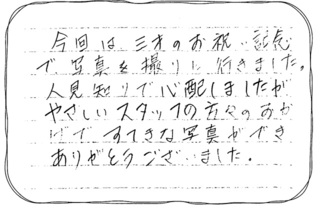 今回は、三才のお祝い記念
で写真を撮りに行きました。
人見知りで心配しましたが
やさしいスタッフの方々のおか
げで すてきな写真ができ
ありがとうございました。